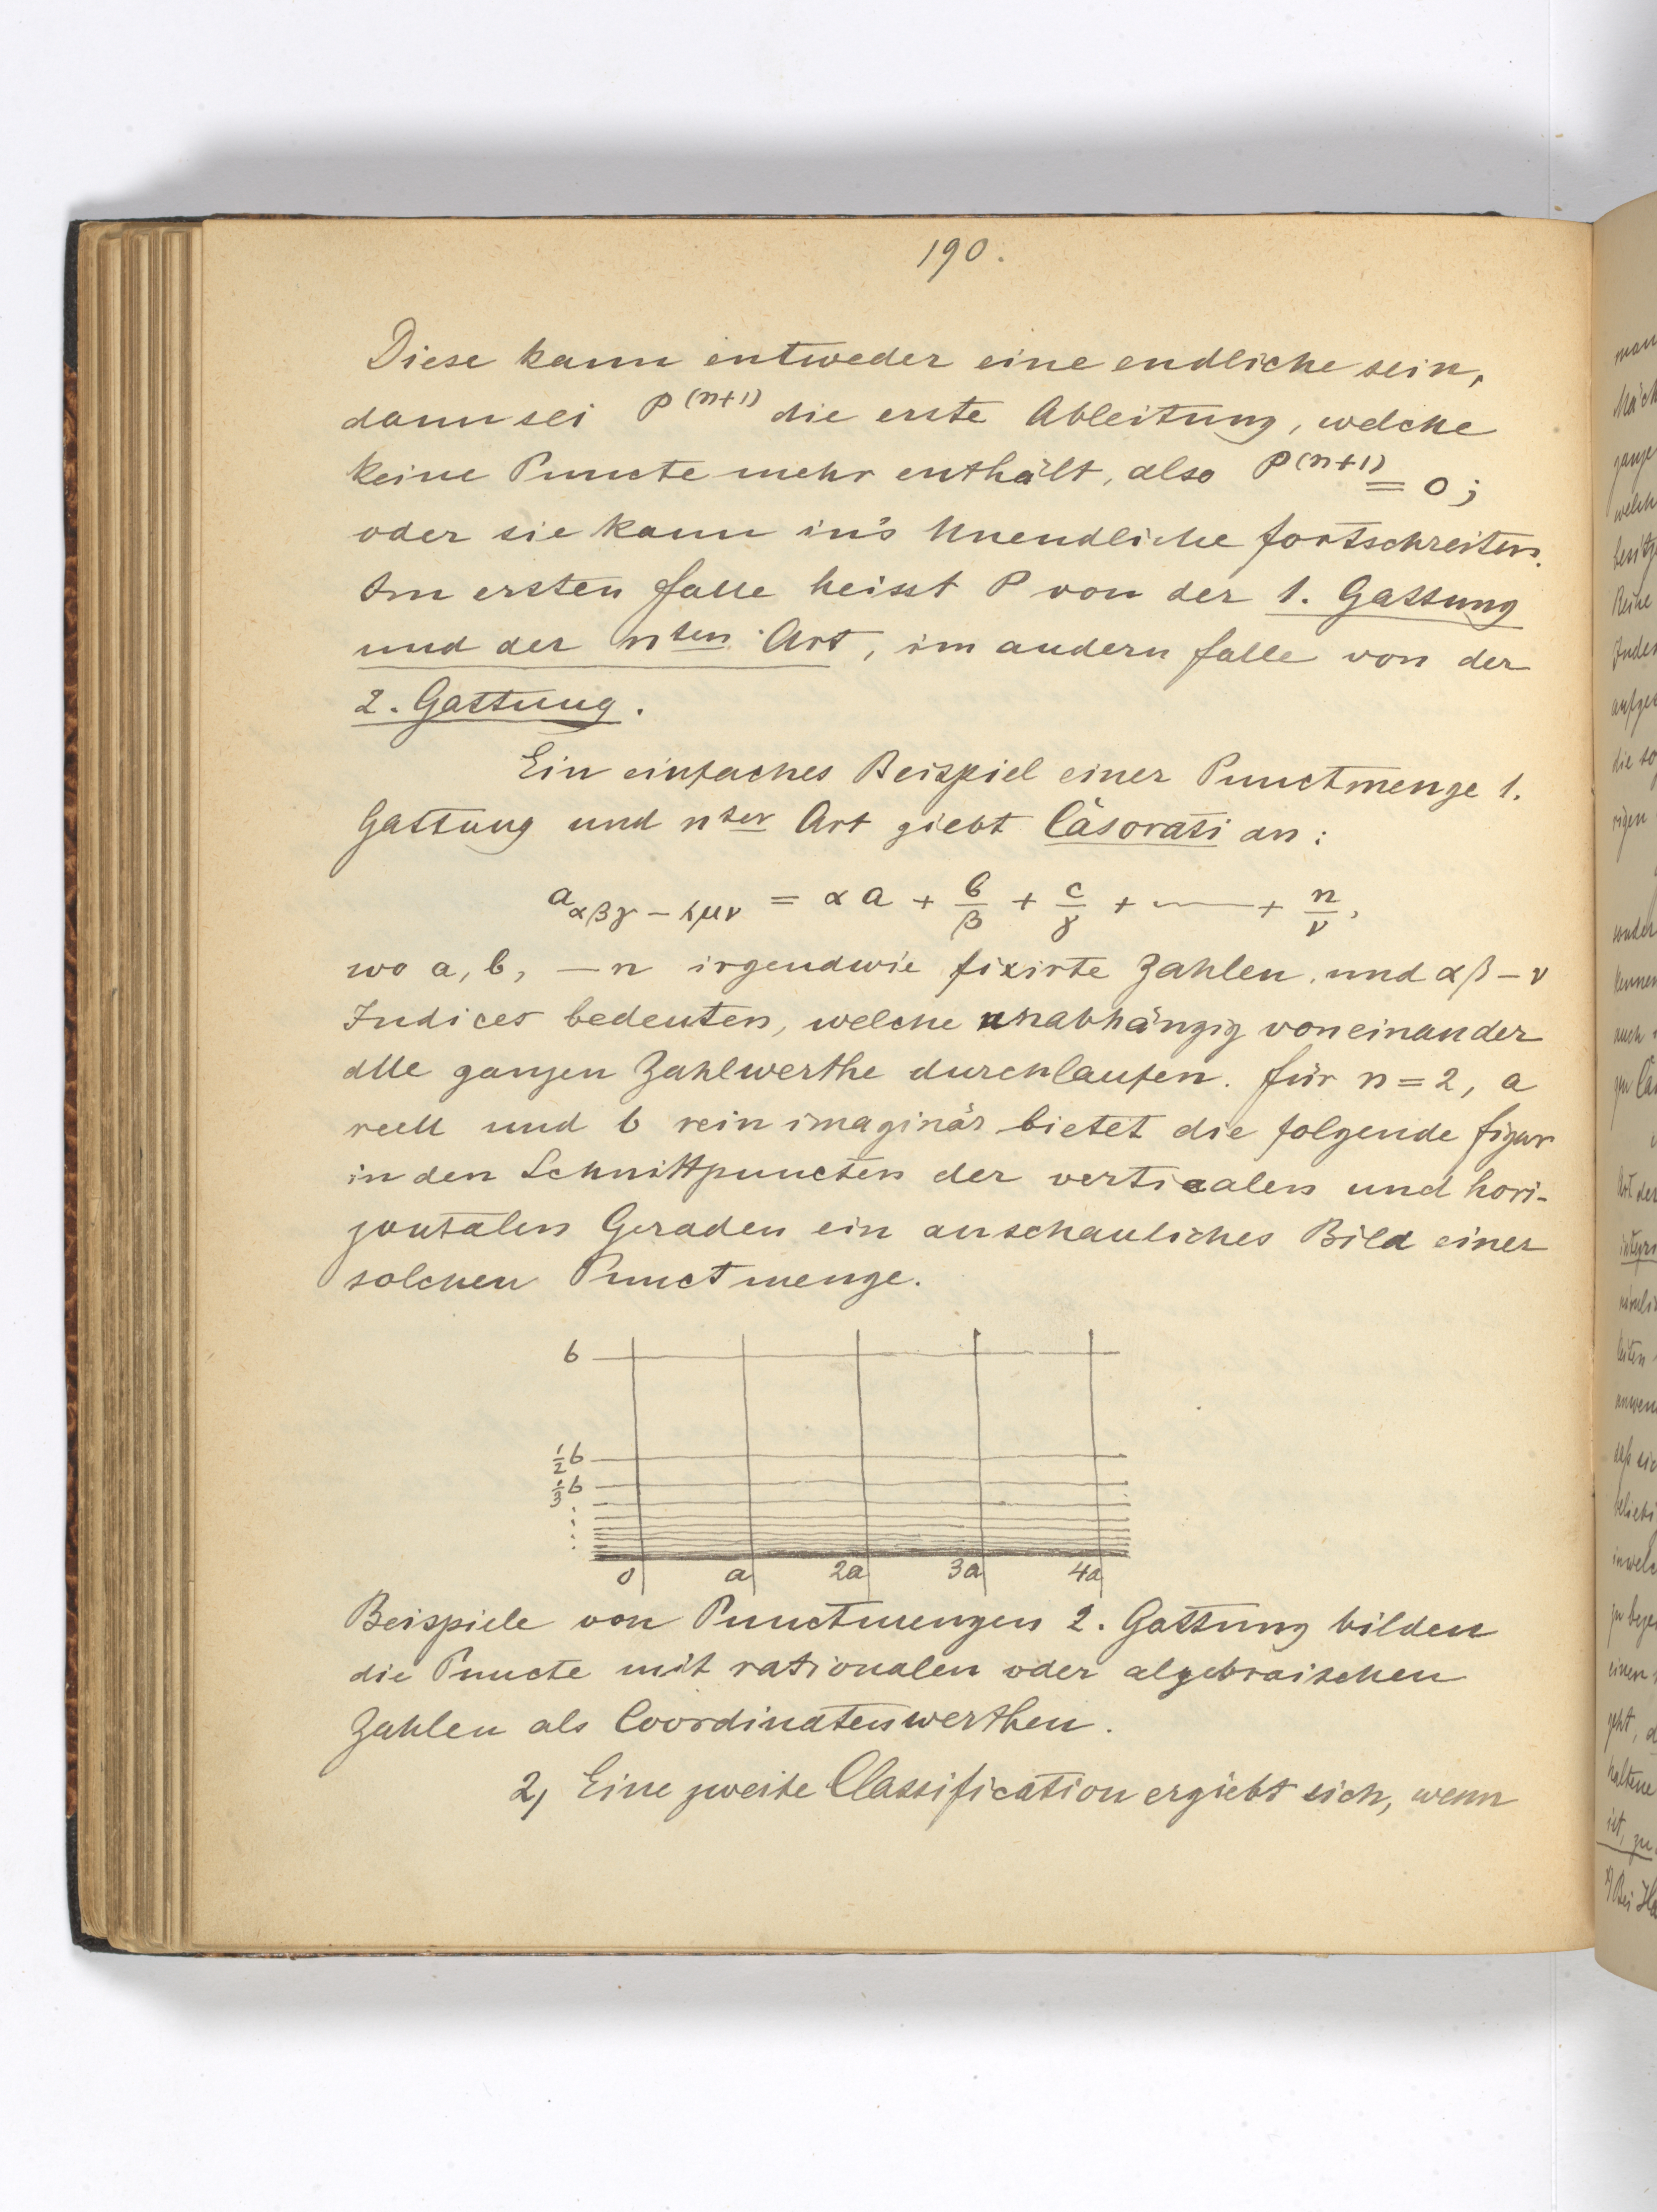 190.
Diese kann entweder eine endliche sein,
dann sei P^(n+1) die erste Ableitung, welche
keine Puncte mehr enthält, also P^(n+1) = 0;
oder sie kann in's Unendliche fortschreiten.
Im ersten Falle heisst P von der 1. Gattung
und der n^ten Art, im andern Falle von der
2. Gattung.
Ein einfaches Beispiel einer Punctmenge 1.
Gattung und n^ter Art giebt Càsorati an:
a_αβγ–λμν = αa + b/β + c/γ + —— + n/ν,
wo a, b, — n irgendwie fixirte Zahlen, und αβ – ν
Indices bedeuten, welche unabhängig voneinander
alle ganzen Zahlwerthe durchlaufen. Für n = 2, a
reell und b rein imaginär bietet die folgende Figur
in den Schnittpuncten der verticalen und hori-
zontalen Geraden ein anschauliches Bild einer
solchen Punctmenge.
b
1/2 b
1/3 b
0 a 2a 3a 4a
Beispiele von Punctmengen 2. Gattung bilden
die Puncte mit rationalen oder algebraischen
Zahlen als Coordinatenwerthen.
2, Eine zweite Classification ergiebt sich, wenn